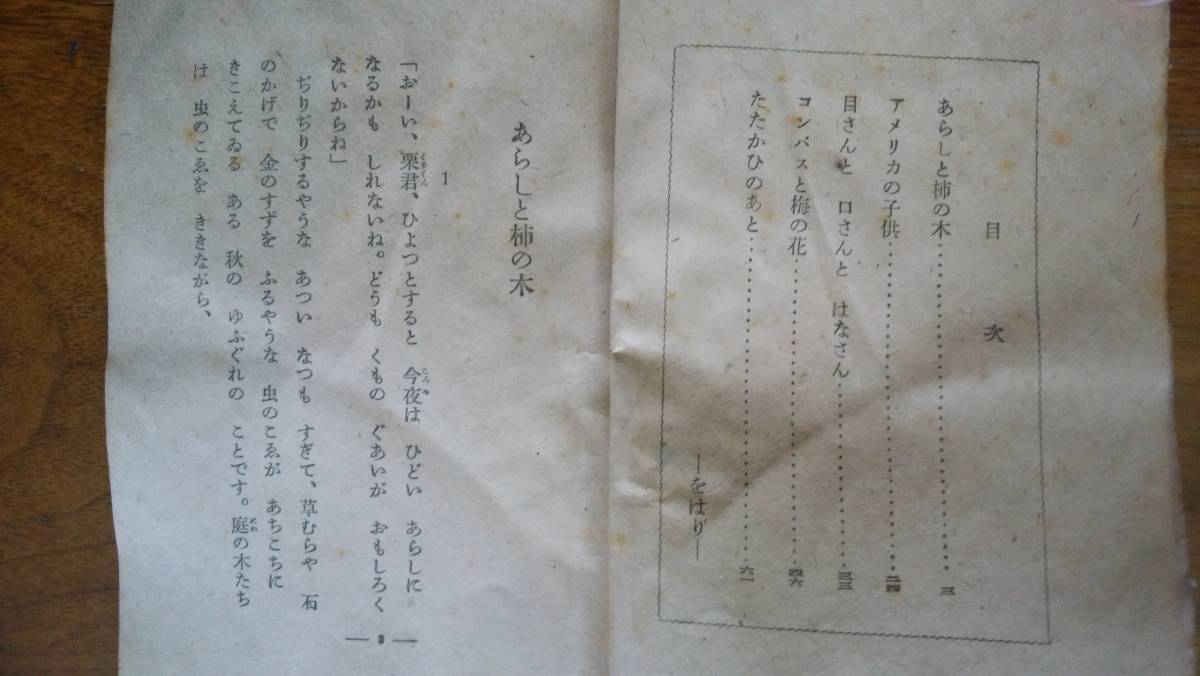 目次
あらしと柿の木…………三
アメリカの子供…………二四
目さんと 口さんと はなさん…………三三
コンパスと梅の花…………四六
たたかひのあと…………六一
—をはり—
あらしと柿の木
1
「おーい、栗君、ひよつとすると 今夜は ひどい あらしに
なるかも しれないね。どうも くもの ぐあいが おもしろく
ないからね」
ぢりぢりするやうな あつい なつも すぎて、草むらや 石
のかげで 金のすずを ふるやうな 虫のこゑが あちこちに
きこえてゐる ある 秋の ゆふぐれの ことです。庭の木たち
は 虫のこゑを ききながら、
— 3 —